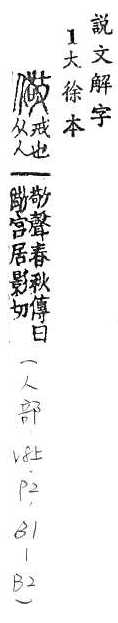 説文解字
1大徐本
儆 戒也从人
敬聲春秋傳曰
儆宮居影切
(人部、V8上.P2,B1—B2)